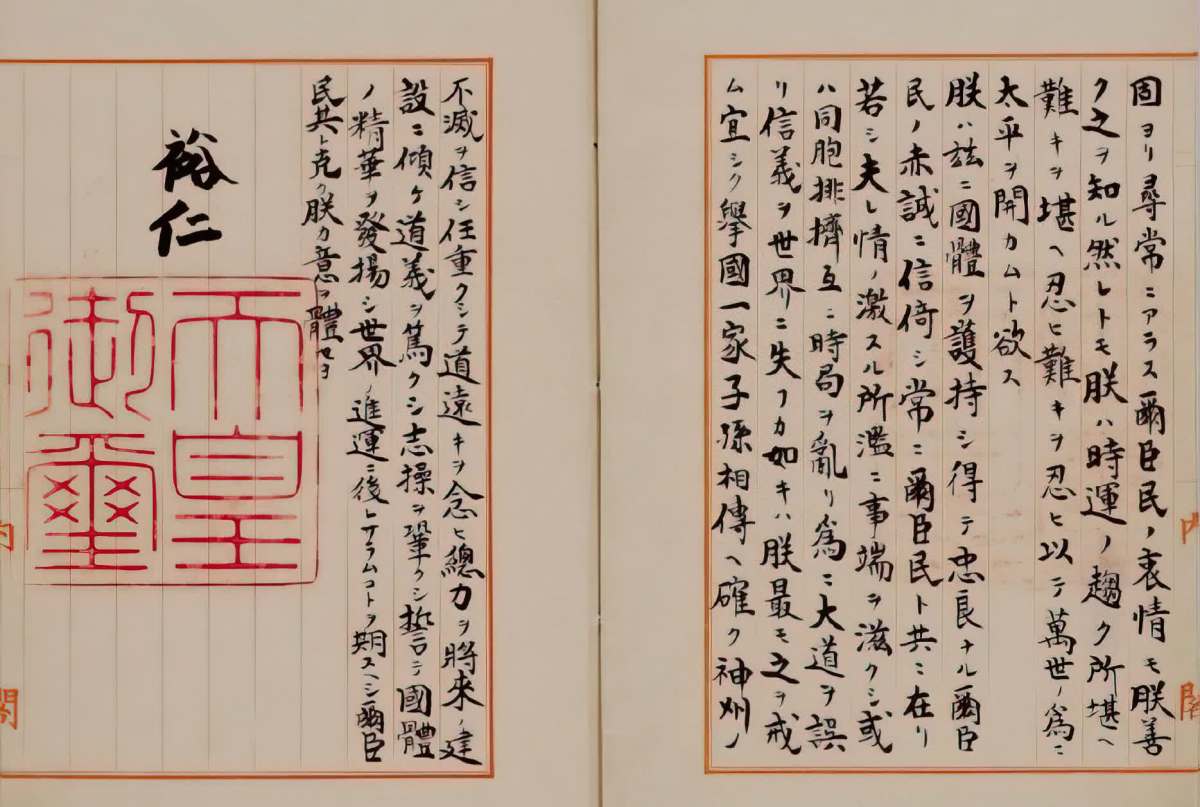 固ヨリ尋常ニアラス爾臣民ノ衷情モ朕善
ク之ヲ知ル然レトモ朕ハ時運ノ趨ク所堪ヘ
難キヲ堪ヘ忍ヒ難キヲ忍ヒ以テ萬世ノ爲ニ
太平ヲ開カムト欲ス
朕ハ茲ニ國體ヲ護持シ得テ忠良ナル爾臣
民ノ赤誠ニ信倚シ常ニ爾臣民ト共ニ在リ
若シ夫レ情ノ激スル所濫ニ事端ヲ滋クシ或
ハ同胞排擠互ニ時局ヲ亂リ爲ニ大道ヲ誤
リ信義ヲ世界ニ失フカ如キハ朕最モ之ヲ戒
ム宜シク擧國一家子孫相傳ヘ確ク神州ノ
内
閣
不滅ヲ信シ任重クシテ道遠キヲ念ヒ總力ヲ將來ノ建
設ニ傾ケ道義ヲ篤クシ志操ヲ鞏クシ誓テ國體
ノ精華ヲ發揚シ世界ノ進運ニ後レサラムコトヲ期スヘシ爾臣
民其レ克ク朕カ意ヲ體セヨ
裕仁
天皇
御璽
内
閣